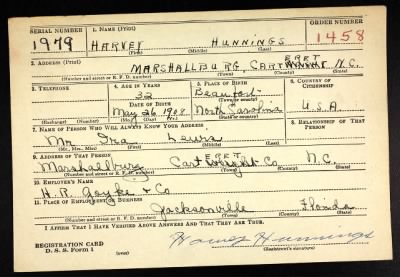 SERIAL NUMBER 1. NAME (Print) ORDER NUMBER
1979 HARVEY HUNNINGS 1458
(First) (Middle) (Last)
2. ADDRESS (Print)
MARSHALLBURG, CART ERET N.C.
(Number and street or R. F. D. number) (Town) (County) (State)
3. TELEPHONE 4. AGE IN YEARS 5. PLACE OF BIRTH 6. COUNTRY OF CITIZENSHIP
32 Beaufort
DATE OF BIRTH (Town or county)
May 26 1908 North Carolina U.S.A.
(Exchange) (Number) (Mo.) (Day) (Yr.) (State or country)
7. NAME OF PERSON WHO WILL ALWAYS KNOW YOUR ADDRESS 8. RELATIONSHIP OF THAT PERSON
Mr. Ira Lewis
(Mr., Mrs., Miss) (First) (Middle) (Last)
9. ADDRESS OF THAT PERSON
Marshallburg Cart ERET Co N.C.
(Number and street or R. F. D. number) (Town) (County) (State)
10. EMPLOYER'S NAME
H. R. & Co
11. PLACE OF EMPLOYMENT OR BUSINESS
Jacksonville Florida
(Number and street or R. F. D. number) (Town) (County) (State)
I AFFIRM THAT I HAVE VERIFIED ABOVE ANSWERS AND THAT THEY ARE TRUE.
REGISTRATION CARD
D. S. S. Form 1
Harvey Hunnings
(Registrant's signature)